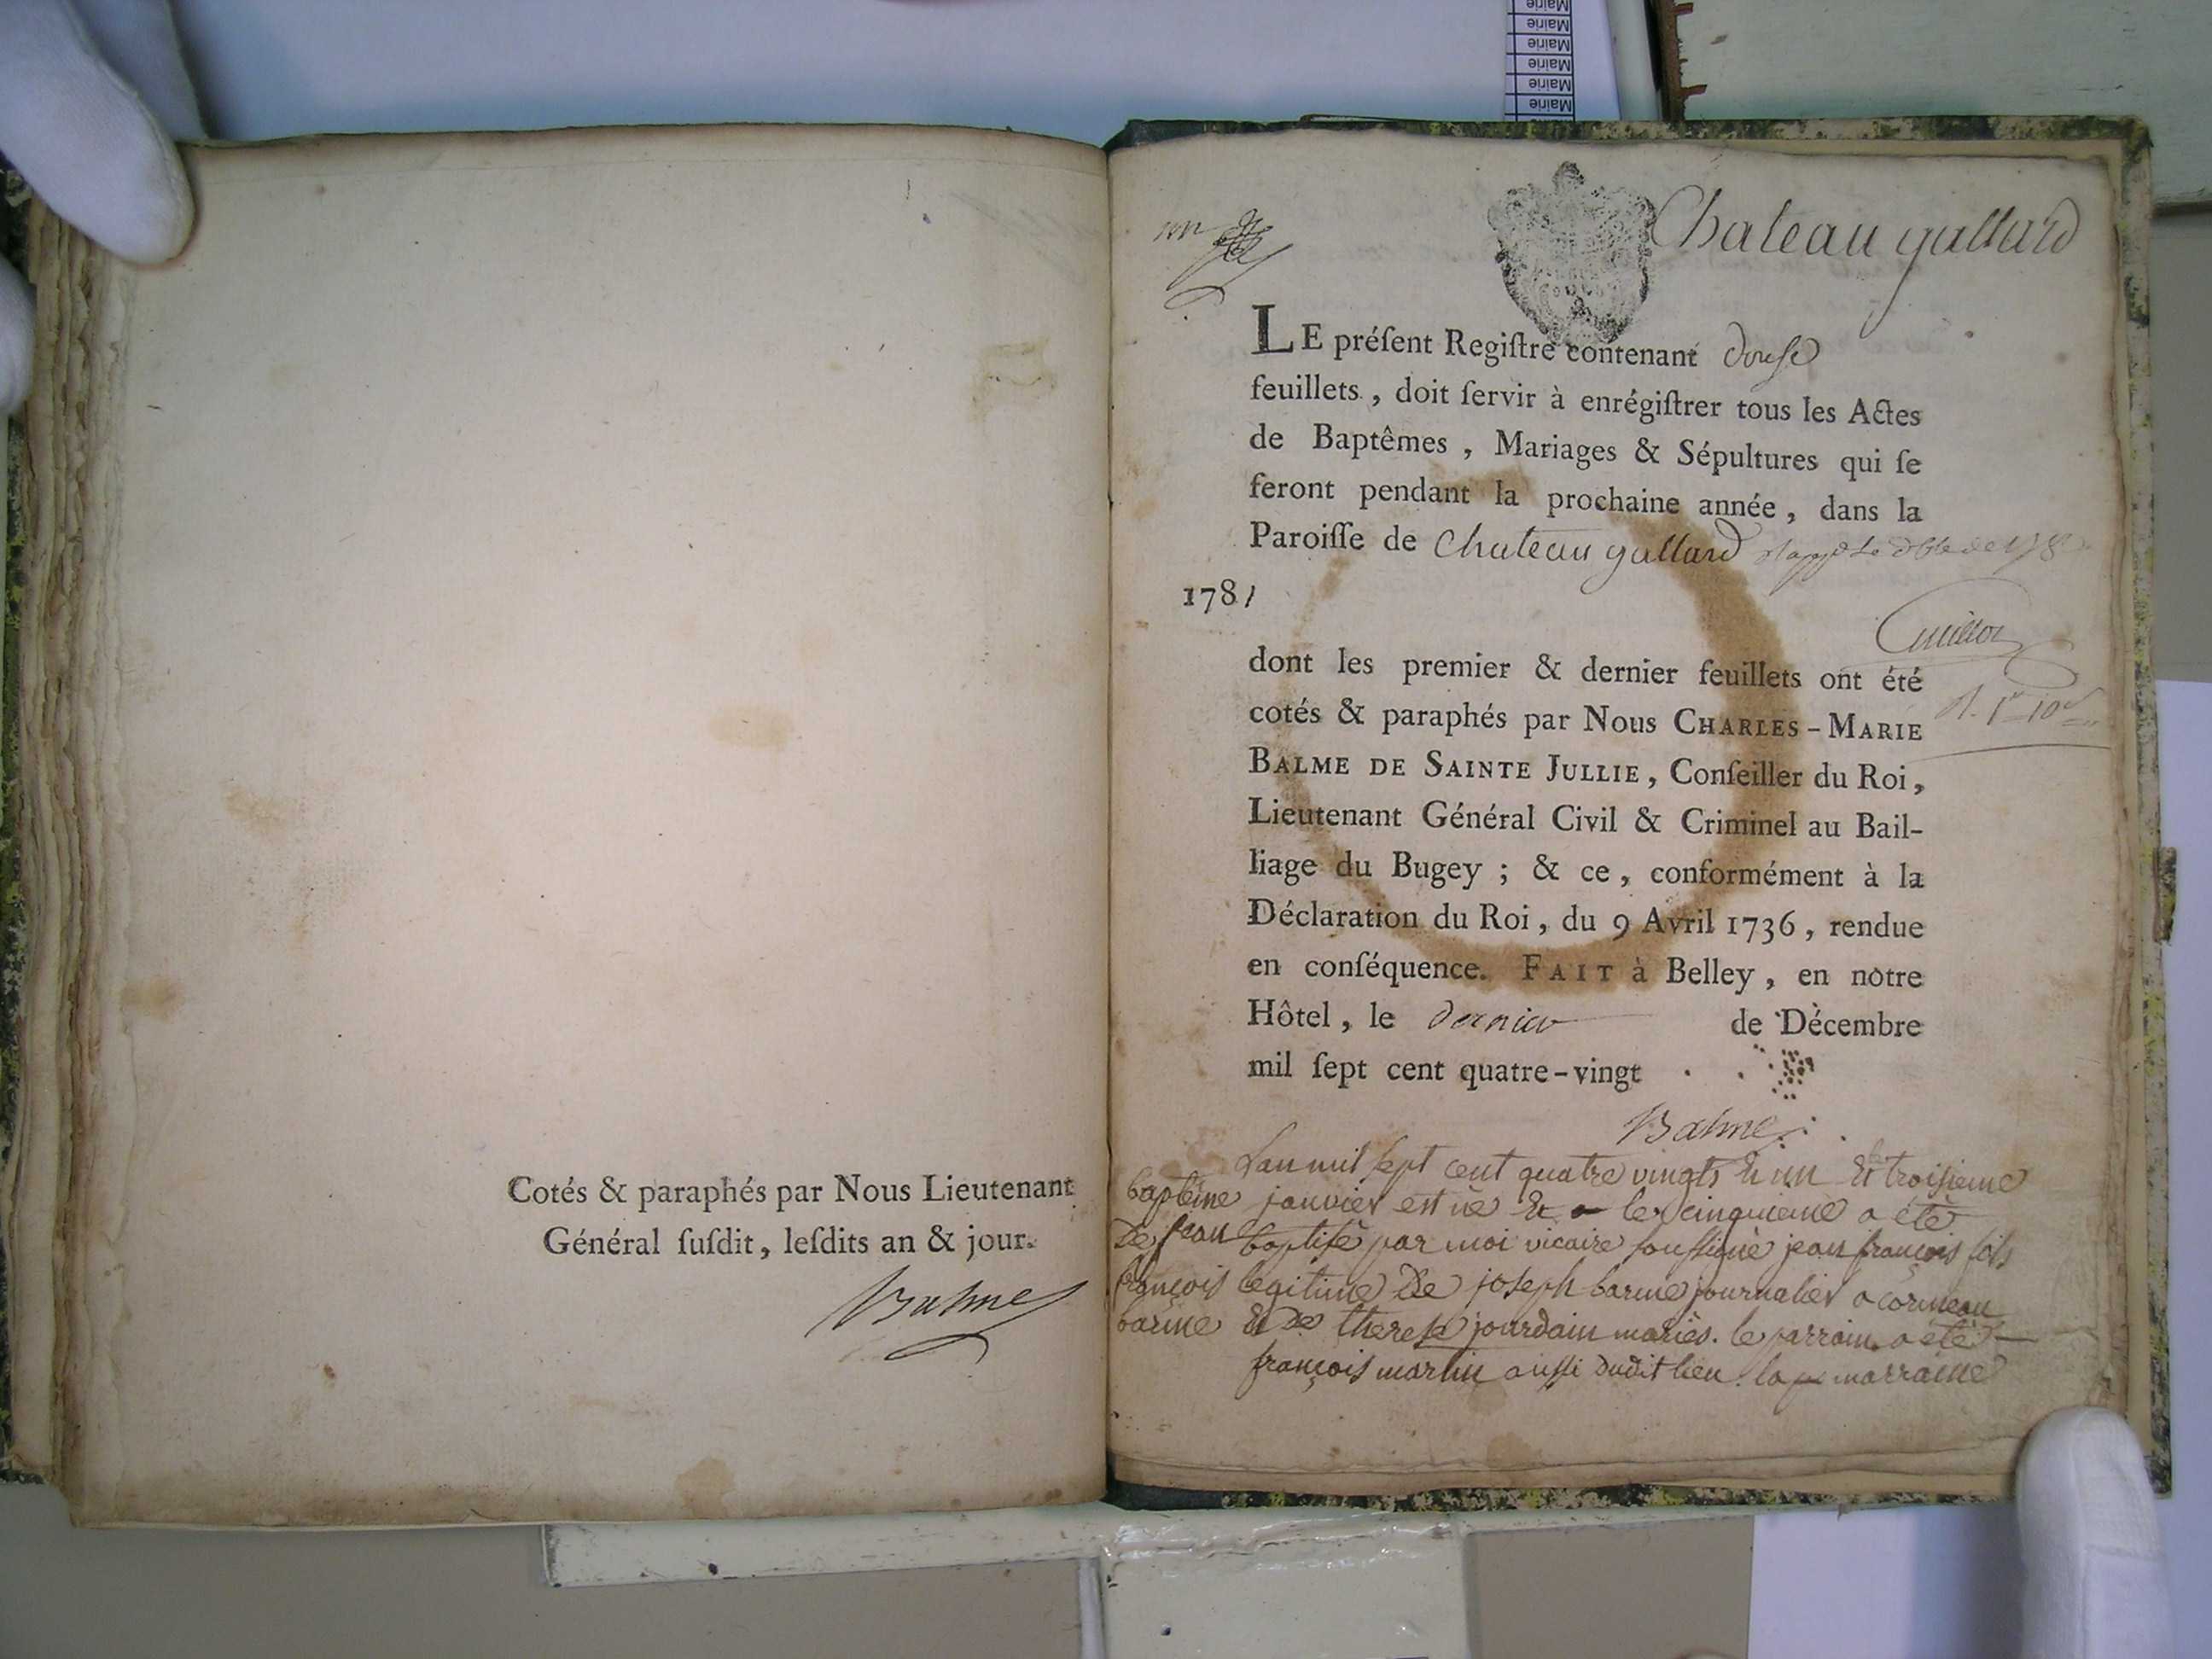 Mairie
Mairie
Mairie
Mairie
Mairie
Mairie
Cotés & paraphés par Nous Lieutenant
Général ſuſdit, leſdits an & jour.
Balme
un
Chateau gallard
LE préſent Regiſtre contenant douse
feuillets, doit ſervir à enrégiſtrer tous les Actes
de Baptêmes, Mariages & Sépultures qui ſe
feront pendant la prochaine année, dans la
Paroiſſe de Chateau gallard
1781
dont les premier & dernier feuillets ont été
cotés & paraphés par Nous CHARLES-MARIE
BALME DE SAINTE JULLIE, Conſeiller du Roi,
Lieutenant Général Civil & Criminel au Bail-
liage du Bugey ; & ce, conformément à la
Déclaration du Roi, du 9 Avril 1736, rendue
en conſéquence. FAIT à Belley, en notre
Hôtel, le dernier de Dècembre
mil ſept cent quatre-vingt
Balme
Lan mil sept cent quatre vingts & un & le troisieme
janvier est né & le cinquieme a étè
baptisè par moi vicaire soussignè jean françois fils
legitime De joseph barme journalier a cormeau
& De therese jourdain mariès. le parrain a étè
françois martin aussi dudit lieu. la marraine
baptême
De jean
françois
barme